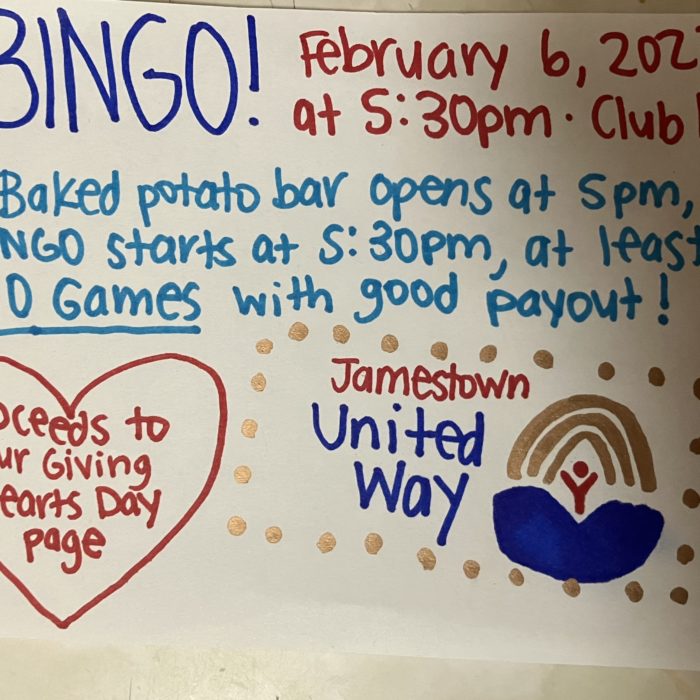 BINGO!
February 6, 202
at 5:30pm · Club
Baked potato bar opens at 5pm,
NGO starts at 5:30pm, at least
0 Games with good payout!
oceeds to
ur Giving
earts Day
page
Jamestown
United
Way